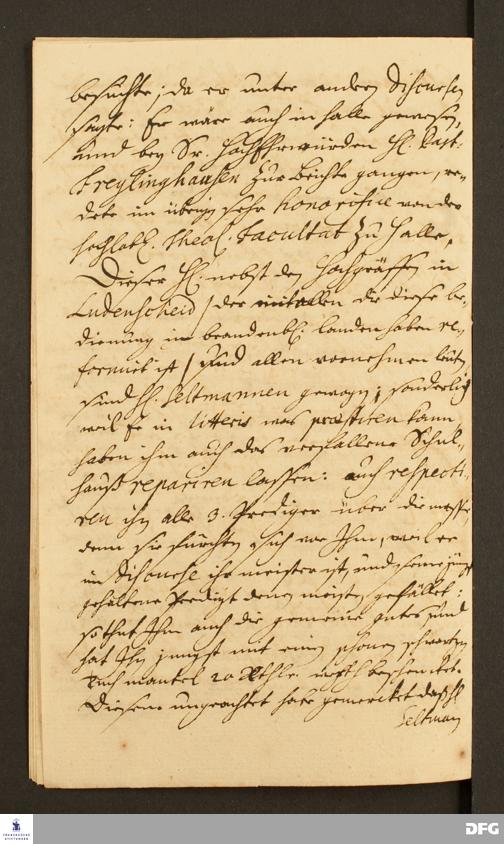 besuchte; da er unter andern Discursen
sagte: Er wäre auch in Halle gewesen,
und bey Sr. HochEhrwürden H. Past.
Freylinghausen zur Beichte gangen, re-
dete im übrigen sehr honorifice von der
hochlobl. Theol. Facultät zu Halle,
Dieser H. nebst den Hochgräffen in
Ludenscheid / der mit allen die diese be-
dienung in brandenb. landen haben re-
formiret ist / und allen vornehmen leuten
sind H. Seltmannen gewogen; sonderlich
weil Er in litteris was praestiren kann
haben ihm auch das verfallene Schul-
hauß repariren lassen: auch respecti-
ren ihn alle 3. Prediger über die masse,
denn sie fürchten sich vor Ihm, weil er
im Discurse ihr meister ist, und seine jüngst
gehaltene Predigt denen meisten gefället:
so thut Ihm auch die gemeine gutes und
hat Ihn jüngst mit einem schönen schwartzen
Tuch mantel 20 Rthlr. werth beschencket.
Diesem ungeachtet habe gemercket daß H.
Seltman
FRANCKESCHE STIFTUNGEN
DFG